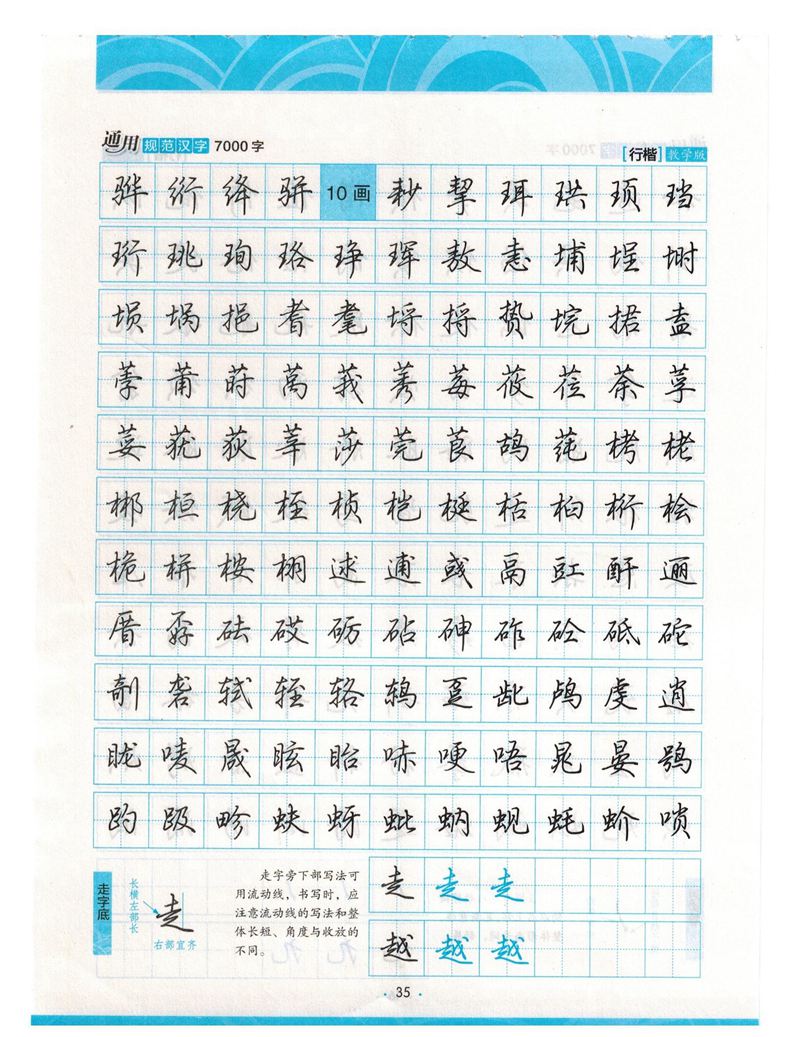 通用规范汉字7000字 [行楷]教学版
骅 绗 绛 骈 10画 耖 挈 珥 珙 顼 珰
珩 珧 珣 珞 琤 珲 敖 恚 埔 埕 埘
埙 埚 挹 耆 耄 埒 捋 贽 垸 捃 盍
荸 莆 莳 莴 莪 莠 莓 莜 莅 荼 莩
荽 莸 荻 莘 莎 莞 莨 鸪 莼 栲 栳
郴 桓 桡 桎 桢 桤 梃 栝 桕 桁 桧
桅 栟 桉 栩 逑 逋 彧 鬲 豇 酐 逦
厝 孬 砝 砹 砺 砧 砷 砟 砼 砥 砣
剞 砻 轼 轾 辂 鸫 趸 龀 鸬 虔 逍
眬 唛 晟 眩 眙 哧 哽 唔 晁 晏 鸮
趵 趿 畛 蚨 蚜 蚍 蚋 蚬 蚝 蚧 唢
走字底
长横左部长
走
右部宜齐
走字旁下部写法可
用流动线，书写时，应
注意流动线的写法和整
体长短、角度与收放的
不同。
走 走 走
越 越 越
·35·